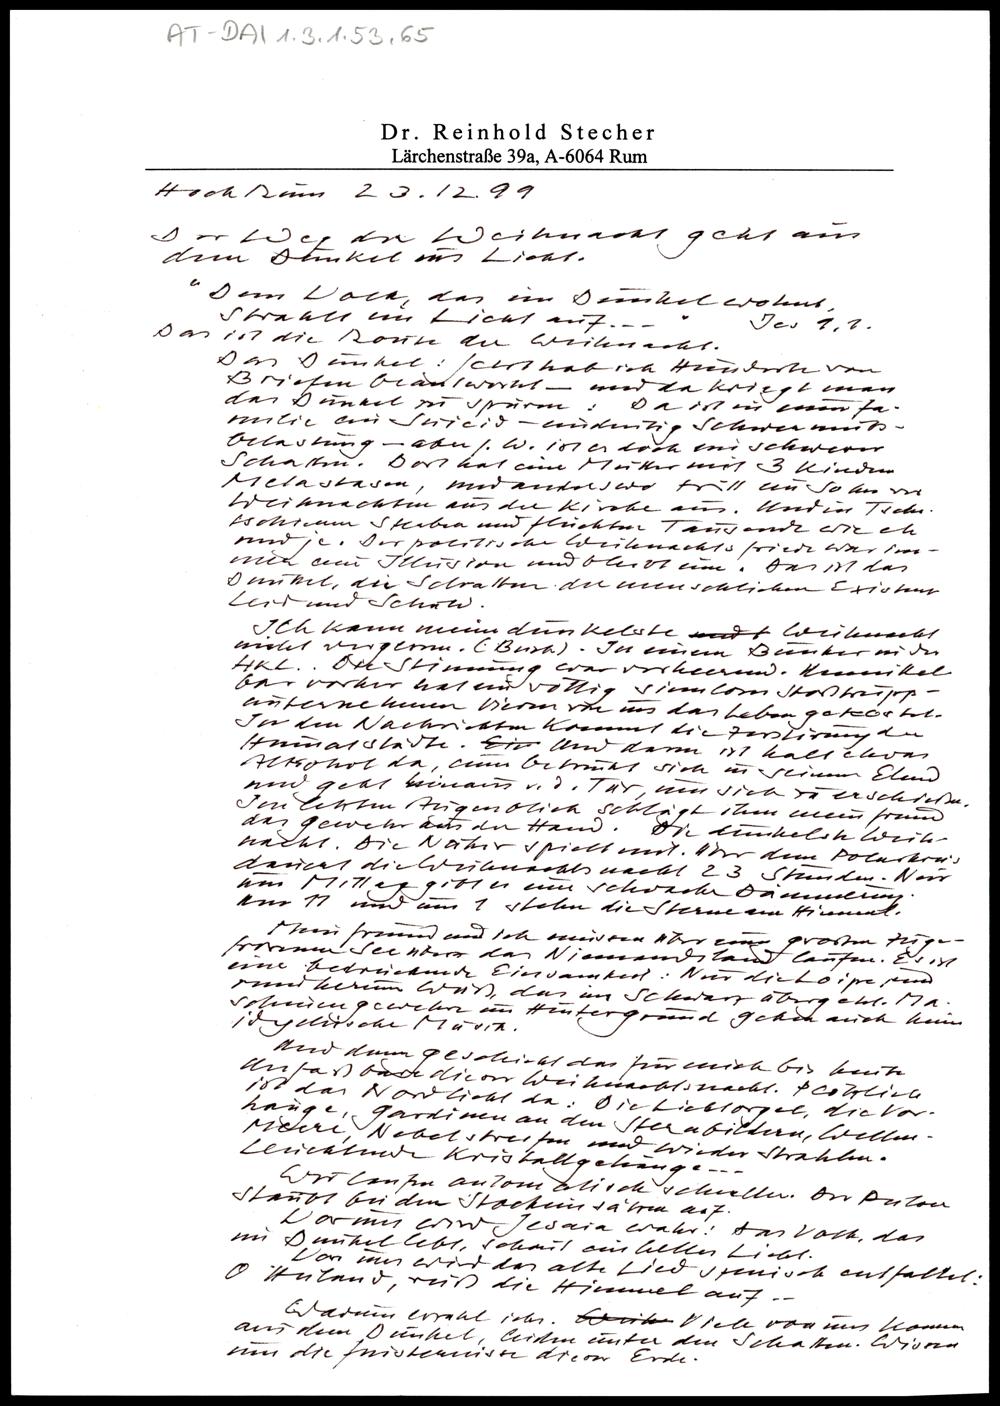 AT-DAI 1.3.1.53.65
Dr. Reinhold Stecher
Lärchenstraße 39a, A-6064 Rum
Hochrum 23.12.99
Der Weg der Weihnacht geht aus
dem Dunkel ins Licht.
"Dem Volk, das im Dunkel wohnt,
strahlt ein Licht auf..." Jes 9,1.
Das ist die Route der Weihnacht.
Das Dunkel: Jetzt hab ich Hunderte von
Briefen beantwortet – und da kriegt man
das Dunkel zu spüren: Da ist in einer Fa-
milie ein Suicid – eindeutig Schwermuts-
belastung – aber j. W. ist es doch ein schwerer
Schatten. Dort hat eine Mutter mit 3 Kindern
Metastasen, und anderswo tritt ein Sohn vor
Weihnachten aus der Kirche aus. Und in Tsche-
tschenien sterben und flüchten Tausende wie eh
und je. Der politische Weihnachtsfriede war im-
mer eine Illusion und bleibt eine. Das ist das
Dunkel, die Schatten der menschlichen Existenz
Leid und Schuld.
Ich kann meine dunkelste Weihnacht
nicht vergessen. In einem Bunker in der
HKL. Die Stimmung war verheerend. Unmittel-
bar vorher hat ein völlig sinnloses Stoßtrupp-
unternehmen Vieren von uns das Leben gekostet.
In den Nachrichten kommt die Zerstörung der
Heimatstädte. Und dann ist halt etwas
Alkohol da, einer betrinkt sich in seinem Elend
und geht hinaus v. d. Tür, um sich zu erschießen.
Im letzten Augenblick schlägt ihm mein Freund
das Gewehr aus der Hand. Die dunkelste Weih-
nacht. Die Natur spielt mit. Über dem Polarkreis
dauert die Weihnachtsnacht 23 Stunden. Nur
um Mittag gibt es eine schwache Dämmerung.
Um 11 und um 1 stehen die Sterne am Himmel.
Mein Freund und ich müssen über einen großen zuge-
frorenen See über das Niemandsland laufen. Es ist
eine bedrückende Einsamkeit: Nur die Loipe, und
rundherum Weiß, das im Schwarz übergeht. Ma-
schinengewehre im Hintergrund geben auch keine
idyllische Musik.
Und dann geschieht das für mich bis heute
Unfaßbare dieser Weihnachtsnacht. Plötzlich
ist das Nordlicht da: Die Lichtorgel, die Vor-
hänge, Gardinen an den Sternbildern, Wellen-
Meere, Nebelstreifen und wieder Strahlen.
Leuchtende Kristallgehänge...
Wir laufen automatisch schneller. Der Pulver
staubt bei den Stockeinsätzen auf.
Vor uns wird Jesaia wahr: Das Volk, das
im Dunkel lebt, schaut ein helles Licht.
Vor uns wird das alte Lied szenisch entfaltet:
O Heiland, reiß die Himmel auf...
Warum erzähl ichs. Viele von uns kommen
aus dem Dunkel, leiden unter den Schatten. Wissen
um die Finsternisse dieser Erde.